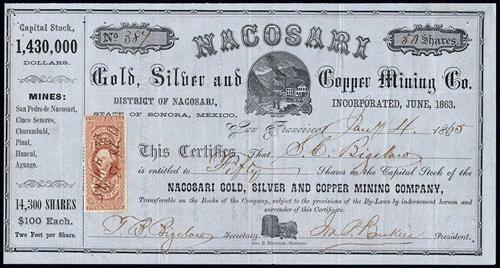 Capital Stock,
1,430,000
DOLLARS.
MINES:
San Pedro de Nacosari,
Cinco Senores,
Churumbabi,
Pinal,
Huacal,
Aguage.
14,300 SHARES
$100 Each.
Two Feet per Share.
No 387
50 Shares.
NACOSARI
Gold, Silver and Copper Mining Co.
DISTRICT OF NACOSARI,
STATE OF SONORA, MEXICO.
INCORPORATED, JUNE, 1863.
San Francisco Jany 4 1865
This Certifies That S. C. Bigelow
is entitled to Fifty Shares in the Capital Stock of the
NACOSARI GOLD, SILVER AND COPPER MINING COMPANY,
Transferable on the Books of the Company, subject to the provisions of the By-Laws by indorsement hereon and
surrender of this Certificate.
Bigelow Secretary.
President.